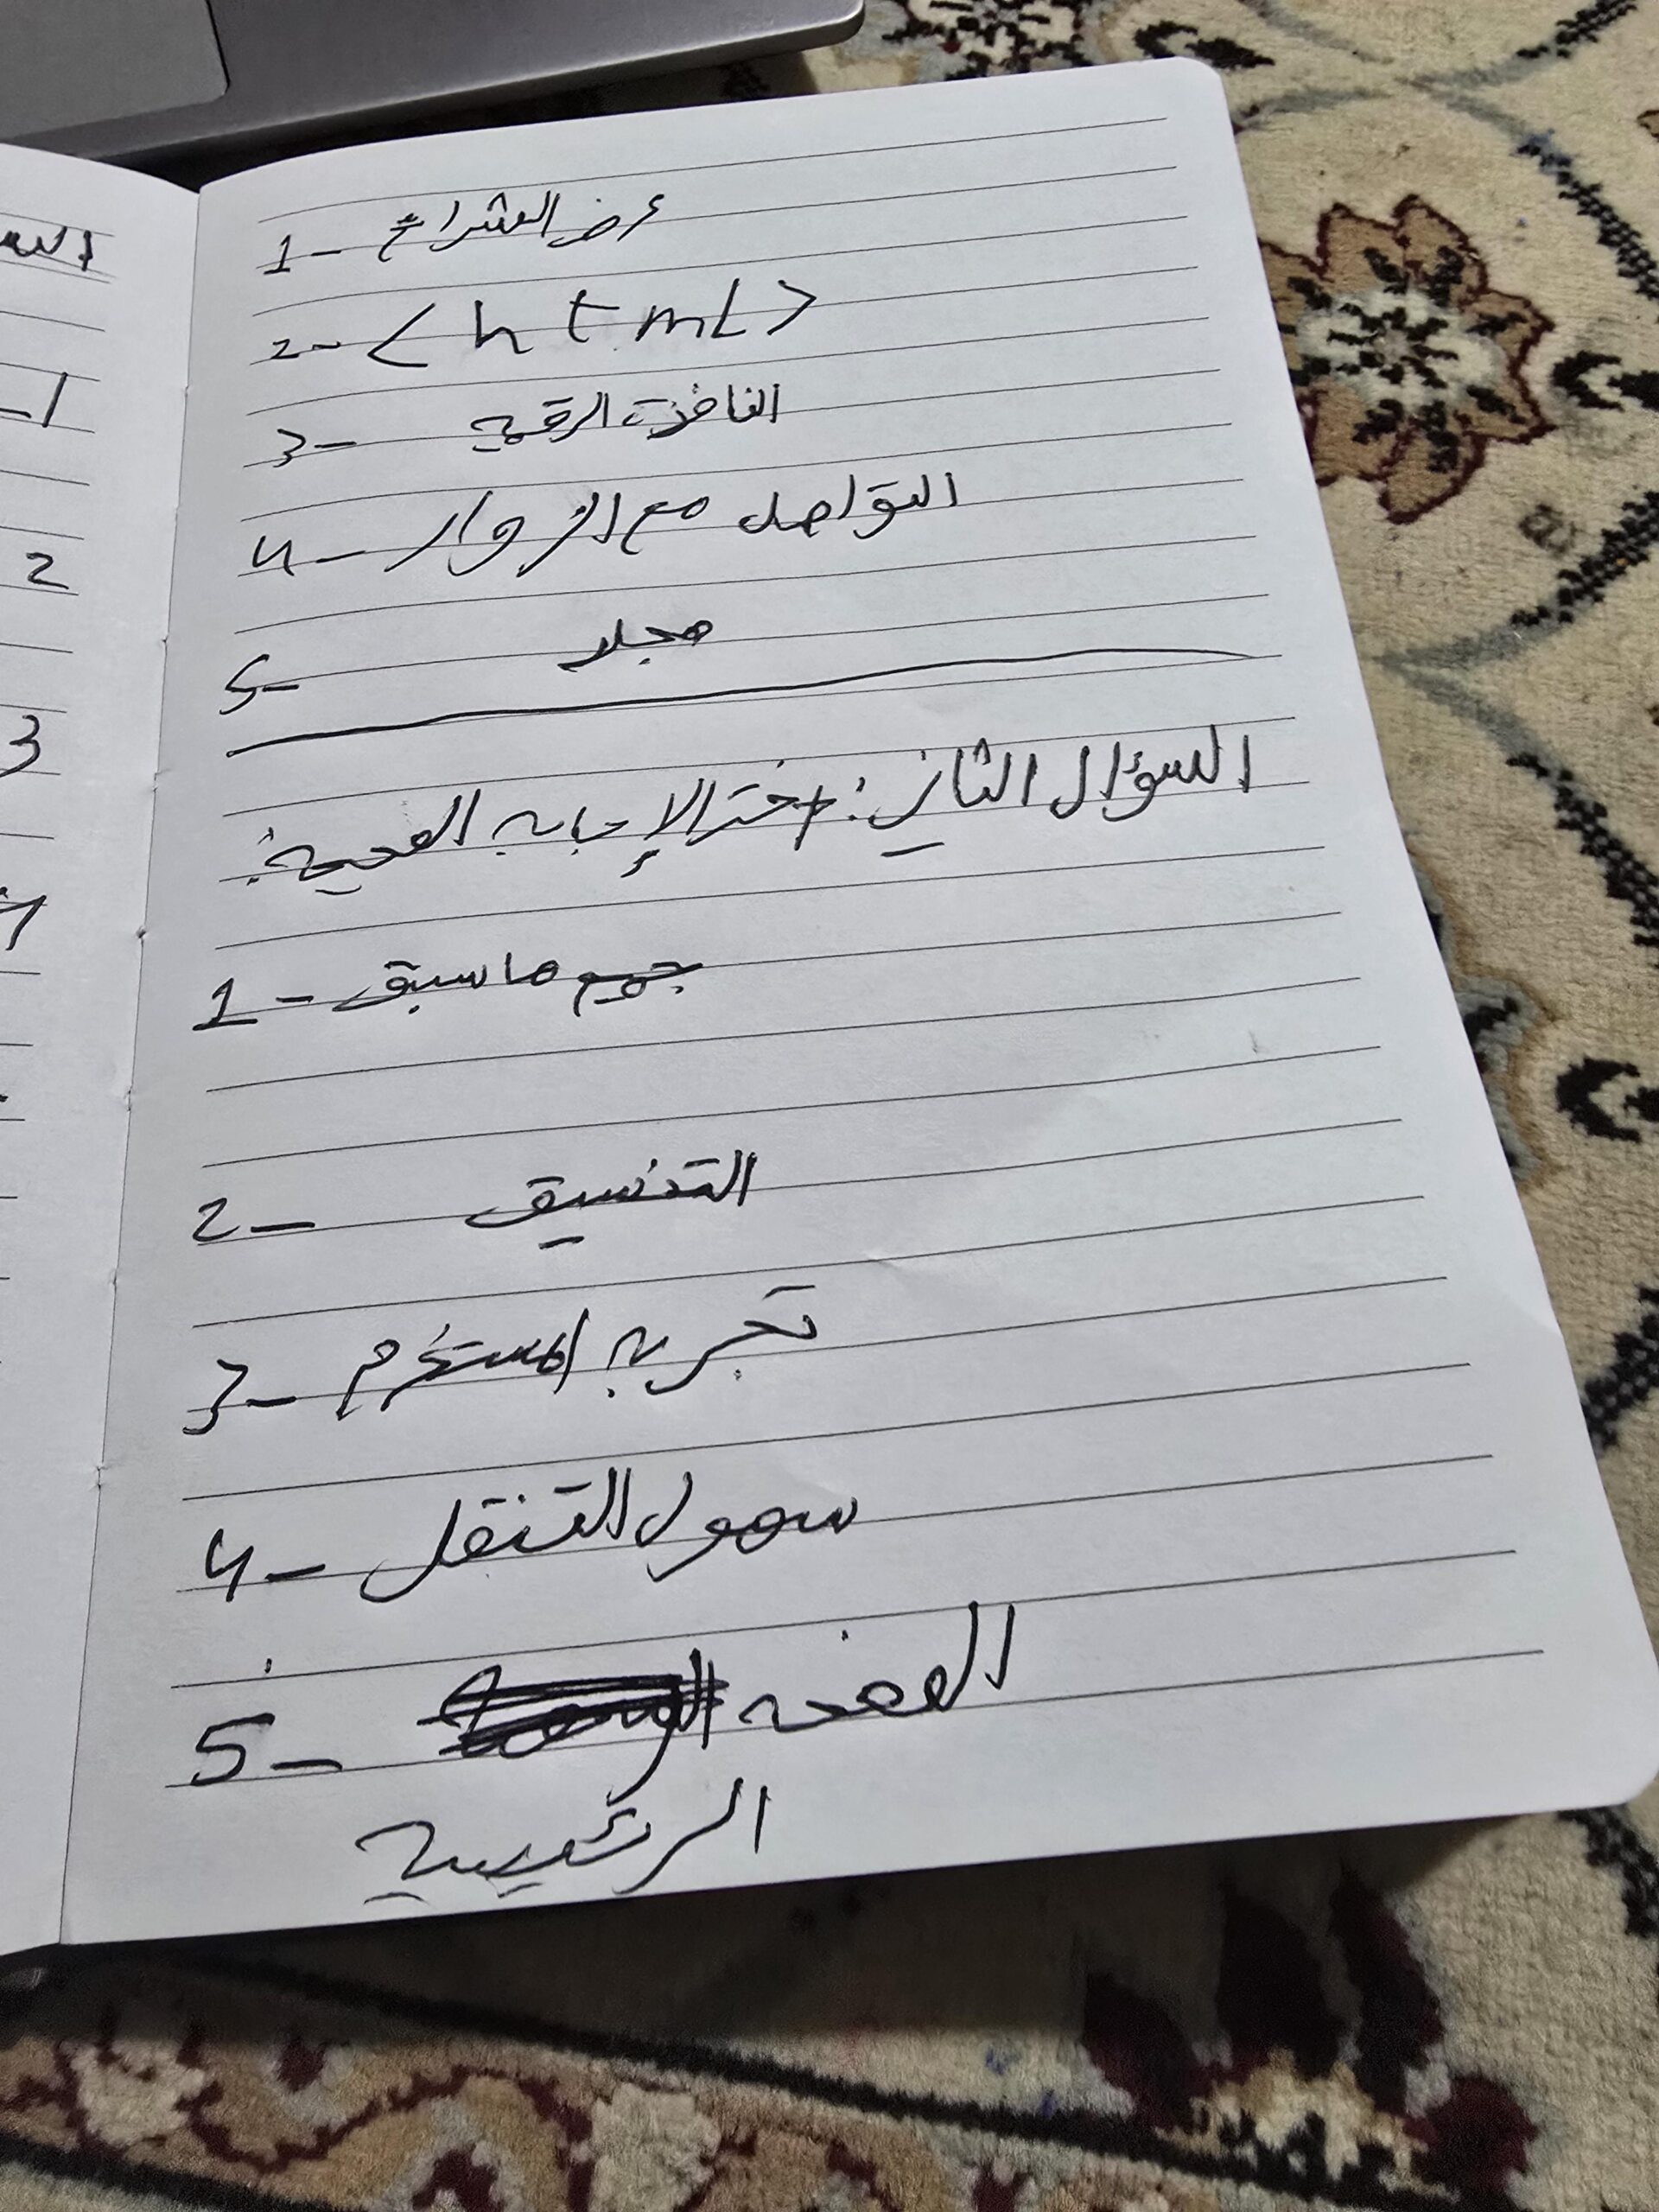 1- عرض الشرائح
2- <html>
3- النافذة الرقميه
4- التواصل مع الزوار
5- مجلد
السؤال الثاني: اختر الإجابه الصحيحة:
1- جميع ما سبق
2- التنسيق
3- تجربه المستخدم
4- سهول التنقل
5- الصفحه
الرئيسيه
1
2
3
4